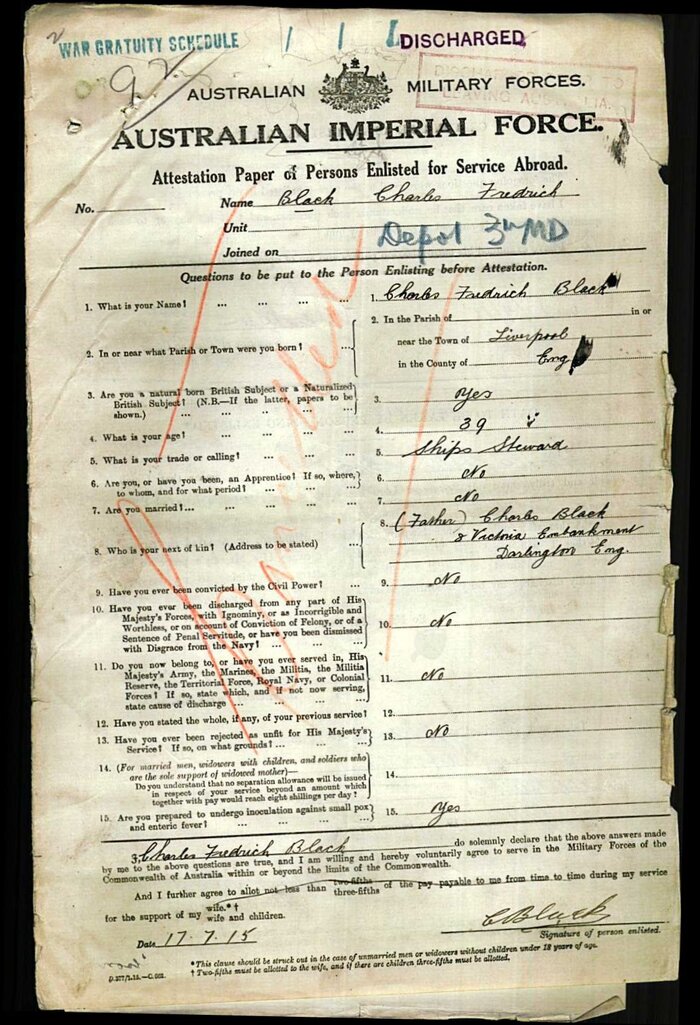 WAR GRATUITY SCHEDULE
DISCHARGED
92
LEAVING AUSTRALIA.
AUSTRALIAN MILITARY FORCES.
AUSTRALIAN IMPERIAL FORCE.
Attestation Paper of Persons Enlisted for Service Abroad.
No. Name Black Charles Fredrich
Unit
Joined on Depot 3rd MD
Questions to be put to the Person Enlisting before Attestation.
1. What is your Name? ... ... ... ... 1. Charles Fredrich Black
2. In or near what Parish or Town were you born? ... 2. In the Parish of in or
near the Town of Liverpool
in the County of Eng
3. Are you a natural born British Subject or a Naturalized
British Subject? (N.B.—If the latter, papers to be
shown.) ... ... ... ... 3. Yes
4. What is your age? ... ... ... ... 4. 39
5. What is your trade or calling? ... ... ... 5. Ships Steward
6. Are you, or have you been, an Apprentice? If so, where,
to whom, and for what period? ... ... ... 6. No
7. Are you married?... ... ... ... 7. No
8. Who is your next of kin? (Address to be stated) ... 8. (Father) Charles Black
8 Victoria Embankment
Darlington Eng.
9. Have you ever been convicted by the Civil Power? ... 9. No
10. Have you ever been discharged from any part of His
Majesty's Forces, with Ignominy, or as Incorrigible and
Worthless, or on account of Conviction of Felony, or of a
Sentence of Penal Servitude, or have you been dismissed
with Disgrace from the Navy? ... ... ... 10. No
11. Do you now belong to, or have you ever served in, His
Majesty's Army, the Marines, the Militia, the Militia
Reserve, the Territorial Force, Royal Navy, or Colonial
Forces? If so, state which, and if not now serving,
state cause of discharge ... ... ... 11. No
12. Have you stated the whole, if any, of your previous service? 12.
13. Have you ever been rejected as unfit for His Majesty's
Service? If so, on what grounds? ... ... ... 13. No
14. (For married men, widowers with children, and soldiers who
are the sole support of widowed mother)—
Do you understand that no separation allowance will be issued
in respect of your service beyond an amount which
together with pay would reach eight shillings per day? ... 14.
15. Are you prepared to undergo inoculation against small pox
and enteric fever? ... ... ... ... 15. Yes
I, Charles Fredrich Black do solemnly declare that the above answers made
by me to the above questions are true, and I am willing and hereby voluntarily agree to serve in the Military Forces of the
Commonwealth of Australia within or beyond the limits of the Commonwealth.
And I further agree to allot not less than two-fifths three-fifths of the pay payable to me from time to time during my service
for the support of my wife.*† wife and children.
C Black
Signature of person enlisted.
Date 17.7.15
* This clause should be struck out in the case of unmarried men or widowers without children under 18 years of age.
† Two-fifths must be allotted to the wife, and if there are children three-fifths must be allotted.